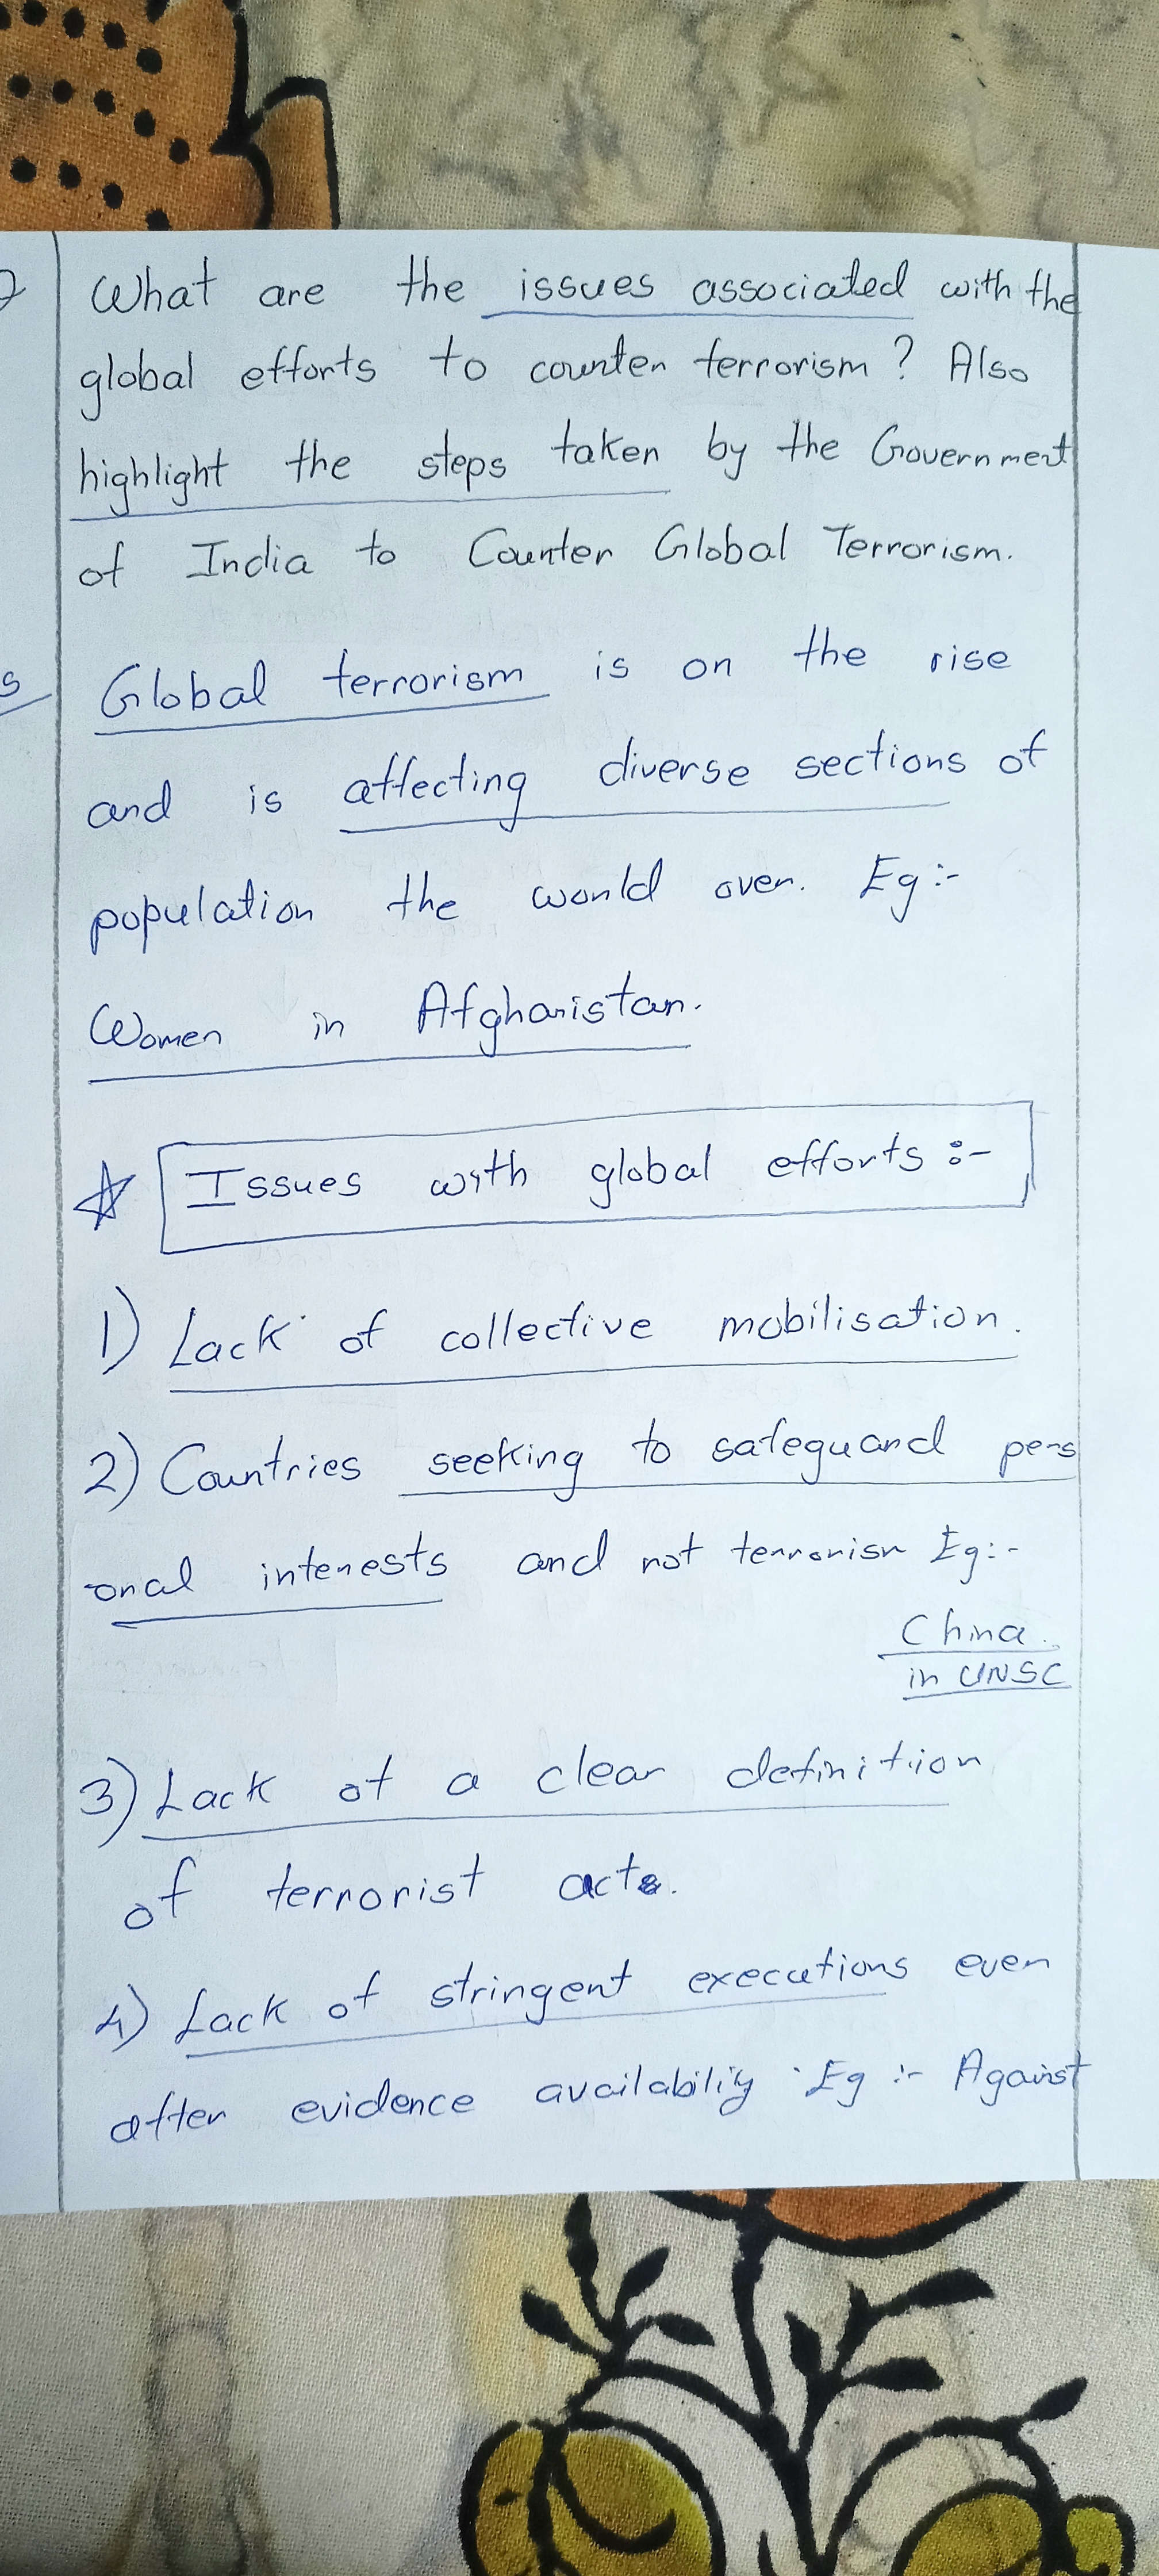 What are the issues associated with the
global efforts to counter terrorism? Also
highlight the steps taken by the Government
of India to Counter Global Terrorism.
Global terrorism is on the rise
and is affecting diverse sections of
population the world over. Eg:-
Women in Afghanistan.
Issues with global efforts :-
1) Lack of collective mobilisation.
2) Countries seeking to safeguard pers
onal interests and not terrorism Eg:-
China
in UNSC
3) Lack of a clear definition
of terrorist acts.
4) Lack of stringent executions even
after evidence availability. Eg :- Against